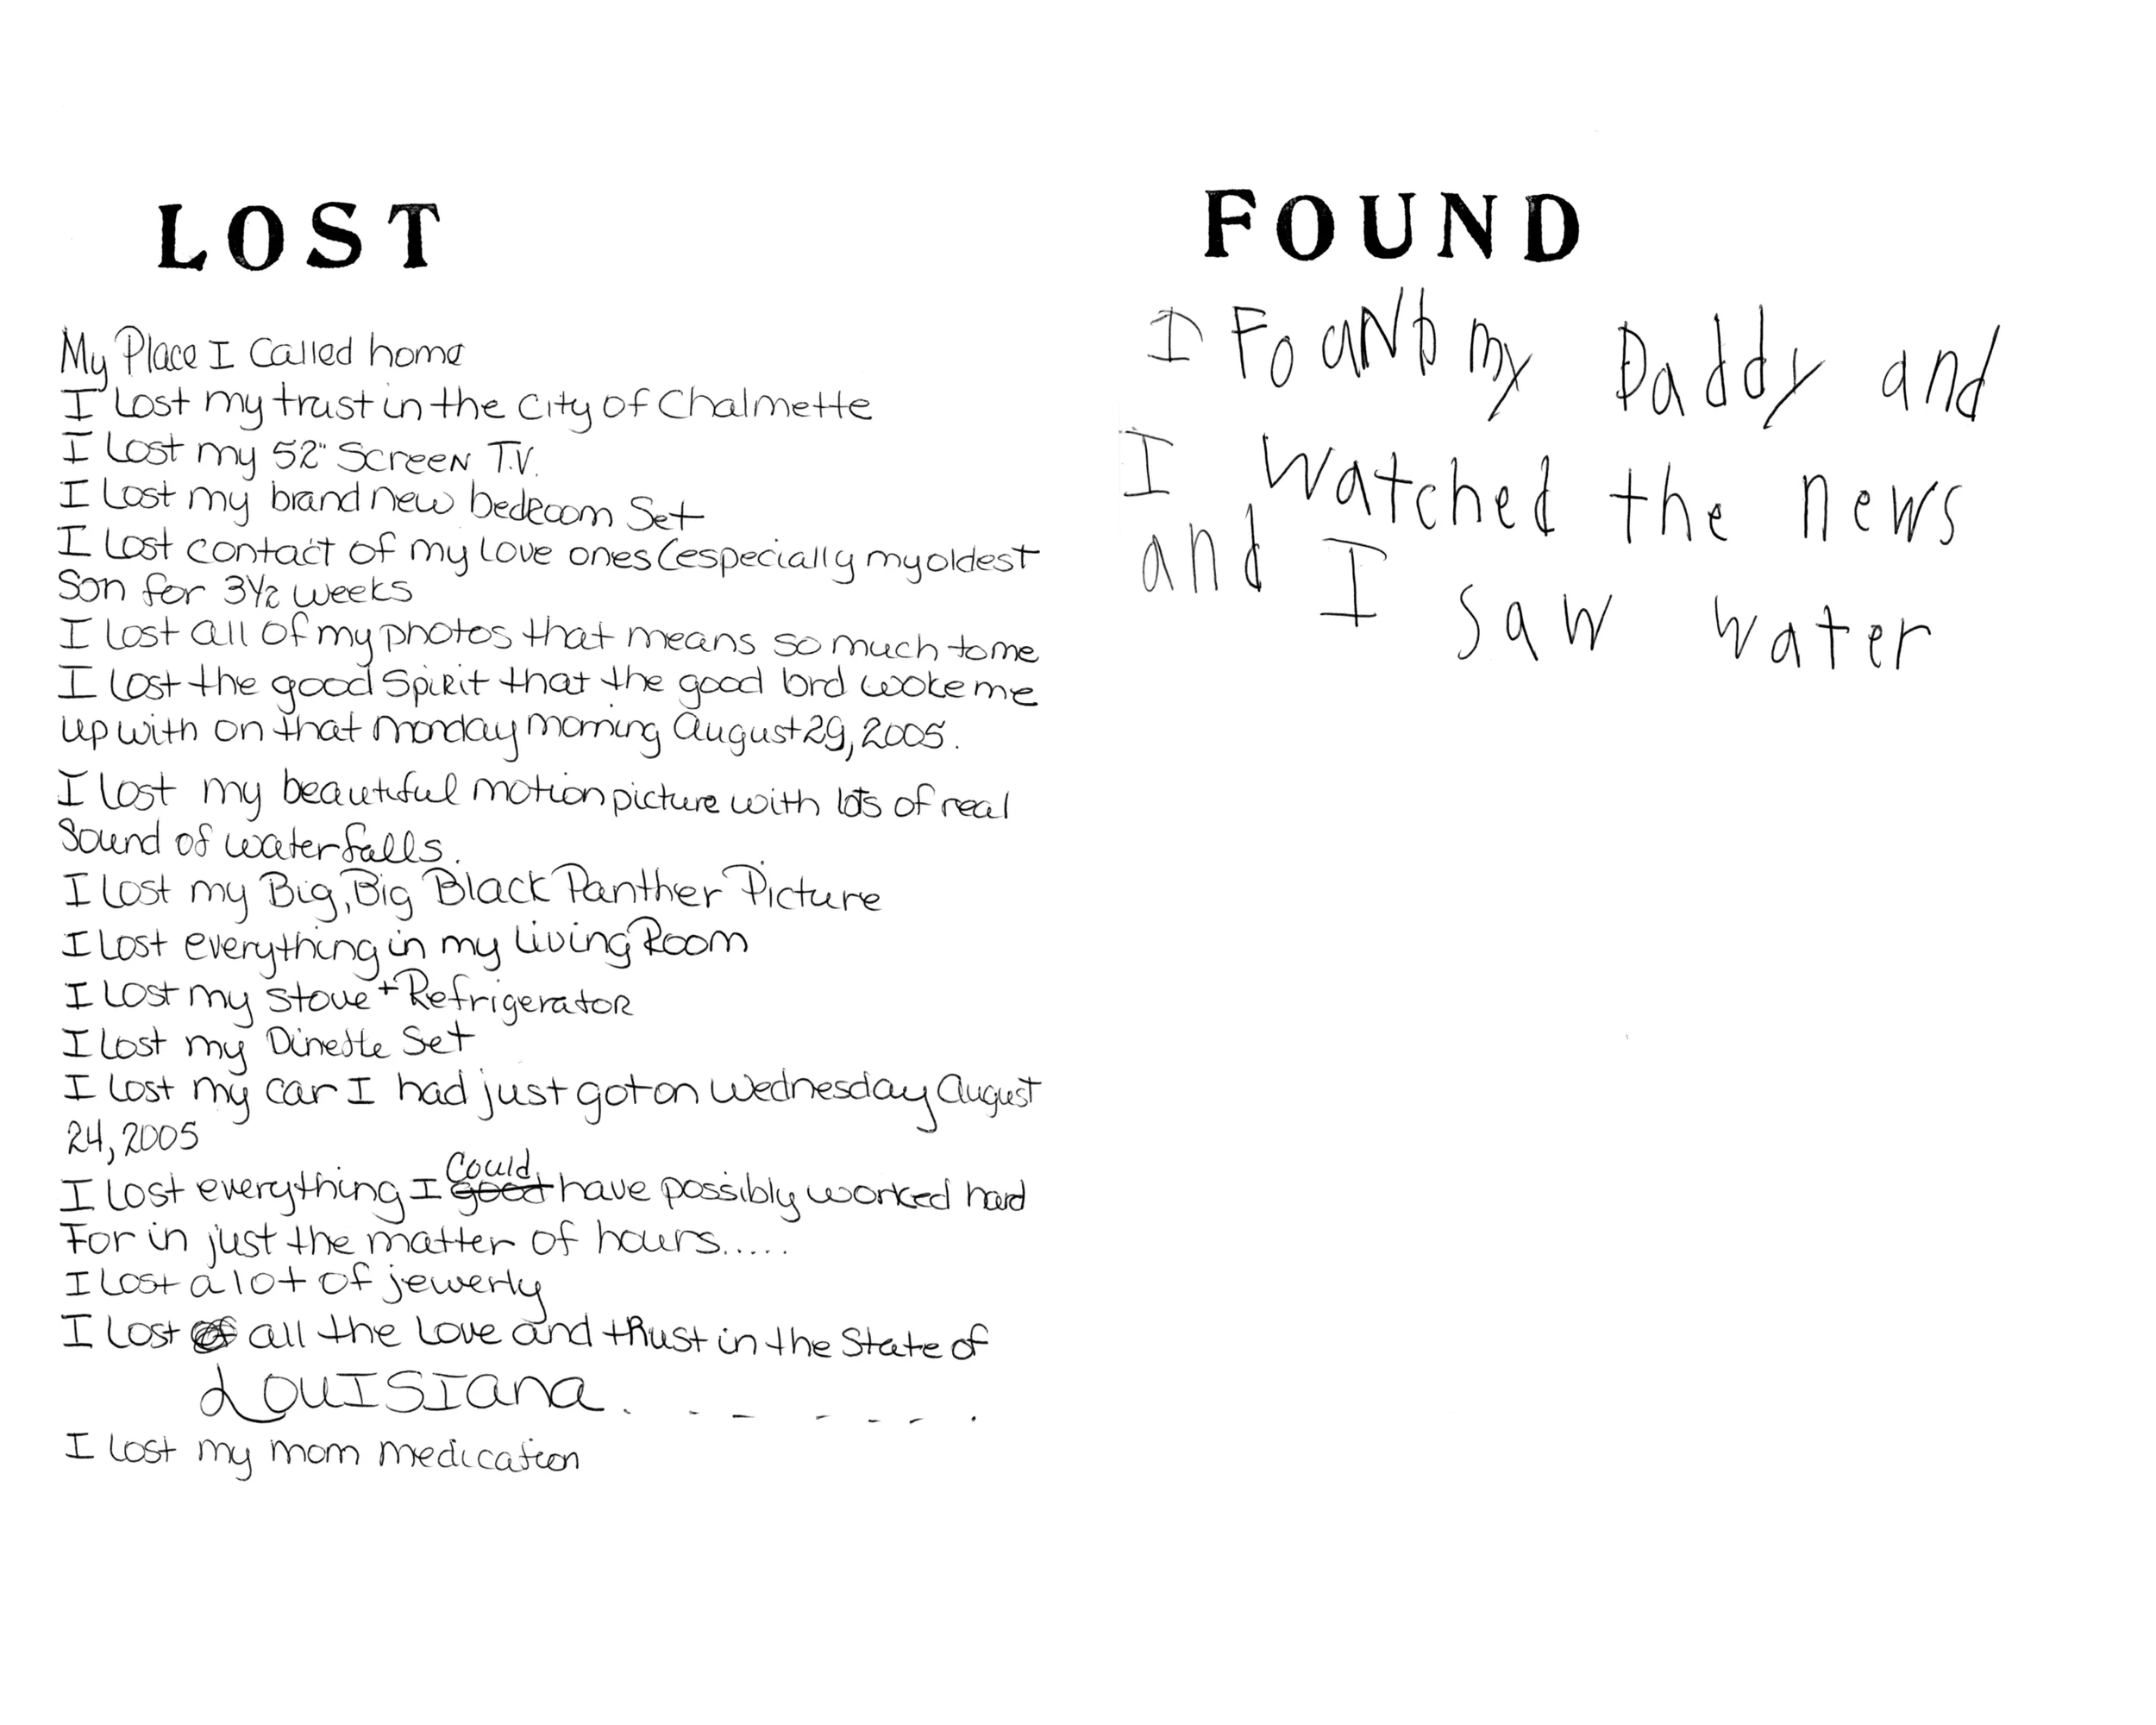 LOST
My Place I Called home
I Lost my trust in the City of Chalmette
I Lost my 52" Screen T.V.
I Lost my brand new bedroom Set
I Lost contact of my Love ones (especially my oldest
Son for 3 1/2 weeks
I Lost all of my photos that means so much to me
I Lost the good Spirit that the good lord woke me
up with on that monday morning August 29, 2005.
I lost my beautiful motion picture with lots of real
Sound of waterfalls.
I Lost my Big, Big Black Panther Picture
I Lost everything in my Living Room
I Lost my stove + Refrigerator
I Lost my Dinette Set
I Lost my car I had just got on Wednesday August
24, 2005
I Lost everything I good Could have possibly worked hard
For in just the matter of hours.....
I Lost a lot of jewerly
I Lost all the Love and thust in the State of
LouISIana. - - - - - .
I Lost my mom medication
FOUND
I FoaNb my Daddy and
I watched the news
and I saw water